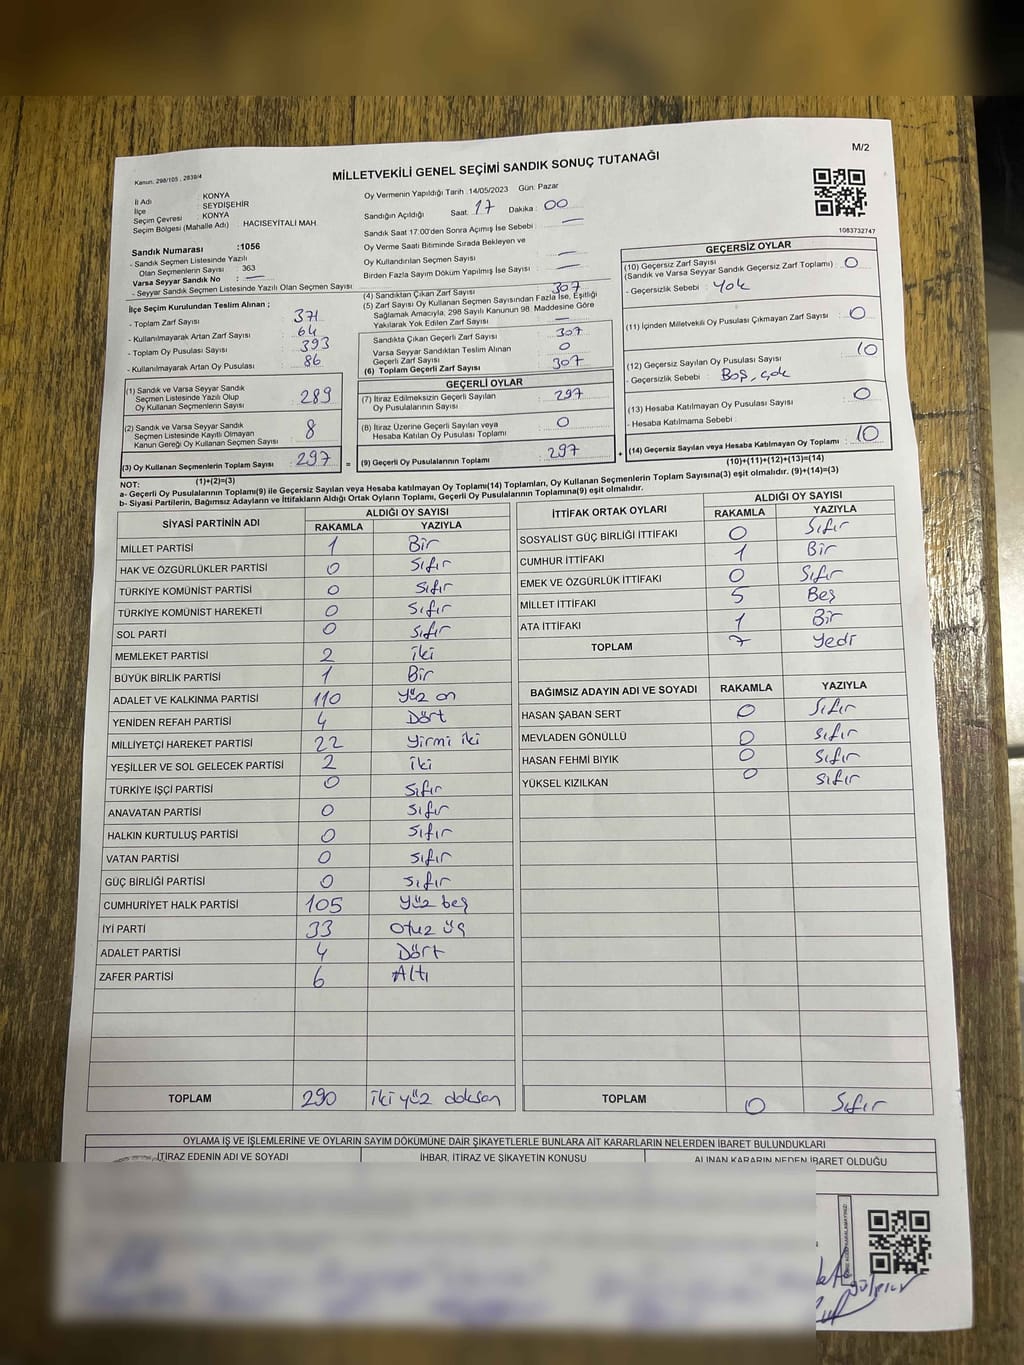 M/2
Kanun: 298/105 , 2839/4
MİLLETVEKİLİ GENEL SEÇİMİ SANDIK SONUÇ TUTANAĞI
1083732747
İl Adı : KONYA
İlçe : SEYDİŞEHİR
Seçim Çevresi : KONYA
Seçim Bölgesi (Mahalle Adı) HACISEYİTALİ MAH.
Sandık Numarası :1056
- Sandık Seçmen Listesinde Yazılı
Olan Seçmenlerin Sayısı : 363
Varsa Seyyar Sandık No : —
- Seyyar Sandık Seçmen Listesinde Yazılı Olan Seçmen Sayısı
Oy Vermenin Yapıldığı Tarih :14/05/2023 Gün: Pazar
Sandığın Açıldığı Saat: 17 Dakika : 00
Sandık Saat 17:00'den Sonra Açılmış İse Sebebi : —
Oy Verme Saati Bitiminde Sırada Bekleyen ve
Oy Kullandırılan Seçmen Sayısı : —
Birden Fazla Sayım Döküm Yapılmış İse Sayısı : —
İlçe Seçim Kurulundan Teslim Alınan ;
- Toplam Zarf Sayısı : 371
- Kullanılmayarak Artan Zarf Sayısı : 64
- Toplam Oy Pusulası Sayısı : 393
- Kullanılmayarak Artan Oy Pusulası : 86
(1) Sandık ve Varsa Seyyar Sandık
Seçmen Listesinde Yazılı Olup
Oy Kullanan Seçmenlerin Sayısı : 289
(2) Sandık ve Varsa Seyyar Sandık
Seçmen Listesinde Kayıtlı Olmayan
Kanun Gereği Oy Kullanan Seçmen Sayısı : 8
(3) Oy Kullanan Seçmenlerin Toplam Sayısı : 297 =
(1)+(2)=(3)
(4) Sandıktan Çıkan Zarf Sayısı : 307
(5) Zarf Sayısı Oy Kullanan Seçmen Sayısından Fazla İse, Eşitliği
Sağlamak Amacıyla, 298 Sayılı Kanunun 98. Maddesine Göre
Yakılarak Yok Edilen Zarf Sayısı : —
Sandıkta Çıkan Geçerli Zarf Sayısı : 307
Varsa Seyyar Sandıktan Teslim Alınan
Geçerli Zarf Sayısı : 0
(6) Toplam Geçerli Zarf Sayısı : 307
GEÇERLİ OYLAR
(7) İtiraz Edilmeksizin Geçerli Sayılan
Oy Pusulalarının Sayısı : 297
(8) İtiraz Üzerine Geçerli Sayılan veya
Hesaba Katılan Oy Pusulası Toplamı : 0
(9) Geçerli Oy Pusulalarının Toplamı : 297 +
GEÇERSİZ OYLAR
(10) Geçersiz Zarf Sayısı
(Sandık ve Varsa Seyyar Sandık Geçersiz Zarf Toplamı) : 0
- Geçersizlik Sebebi : Yok
(11) İçinden Milletvekili Oy Pusulası Çıkmayan Zarf Sayısı : 0
(12) Geçersiz Sayılan Oy Pusulası Sayısı : 10
- Geçersizlik Sebebi : Boş,
(13) Hesaba Katılmayan Oy Pusulası Sayısı : 0
- Hesaba Katılmama Sebebi :
(14) Geçersiz Sayılan veya Hesaba Katılmayan Oy Toplamı : 10
(10)+(11)+(12)+(13)=(14)
NOT:
a- Geçerli Oy Pusulalarının Toplamı(9) ile Geçersiz Sayılan veya Hesaba katılmayan Oy Toplamı(14) Toplamları, Oy Kullanan Seçmenlerin Toplam Sayısına(3) eşit olmalıdır. (9)+(14)=(3)
b- Siyasi Partilerin, Bağımsız Adayların ve İttifakların Aldığı Ortak Oyların Toplamı, Geçerli Oy Pusulalarının Toplamına(9) eşit olmalıdır.
SİYASİ PARTİNİN ADI ALDIĞI OY SAYISI
RAKAMLA YAZIYLA
MİLLET PARTİSİ 1 Bir
HAK VE ÖZGÜRLÜKLER PARTİSİ 0 Sıfır
TÜRKİYE KOMÜNİST PARTİSİ 0 Sıfır
TÜRKİYE KOMÜNİST HAREKETİ 0 Sıfır
SOL PARTİ 0 Sıfır
MEMLEKET PARTİSİ 2 iki
BÜYÜK BİRLİK PARTİSİ 1 Bir
ADALET VE KALKINMA PARTİSİ 110 Yüz on
YENİDEN REFAH PARTİSİ 4 Dört
MİLLİYETÇİ HAREKET PARTİSİ 22 Yirmi iki
YEŞİLLER VE SOL GELECEK PARTİSİ 2 iki
TÜRKİYE İŞÇİ PARTİSİ 0 Sıfır
ANAVATAN PARTİSİ 0 Sıfır
HALKIN KURTULUŞ PARTİSİ 0 Sıfır
VATAN PARTİSİ 0 Sıfır
GÜÇ BİRLİĞİ PARTİSİ 0 Sıfır
CUMHURİYET HALK PARTİSİ 105 Yüz beş
İYİ PARTİ 33 Otuz üç
ADALET PARTİSİ 4 Dört
ZAFER PARTİSİ 6 Altı
TOPLAM 290 iki yüz doksan
İTTİFAK ORTAK OYLARI ALDIĞI OY SAYISI
RAKAMLA YAZIYLA
SOSYALIST GÜÇ BİRLİĞİ İTTİFAKI 0 Sıfır
CUMHUR İTTİFAKI 1 Bir
EMEK VE ÖZGÜRLÜK İTTİFAKI 0 Sıfır
MİLLET İTTİFAKI 5 Beş
ATA İTTİFAKI 1 Bir
TOPLAM 7 Yedi
BAĞIMSIZ ADAYIN ADI VE SOYADI RAKAMLA YAZIYLA
HASAN ŞABAN SERT 0 Sıfır
MEVLADEN GÖNÜLLÜ 0 Sıfır
HASAN FEHMİ BIYIK 0 Sıfır
YÜKSEL KIZILKAN 0 Sıfır
TOPLAM 0 Sıfır
OYLAMA İŞ VE İŞLEMLERİNE VE OYLARIN SAYIM DÖKÜMÜNE DAİR ŞİKAYETLERLE BUNLARA AİT KARARLARIN NELERDEN İBARET BULUNDUKLARI
İTİRAZ EDENİN ADI VE SOYADI İHBAR, İTİRAZ VE ŞİKAYETİN KONUSU ALINAN KARARIN NEDEN İBARET OLDUĞU